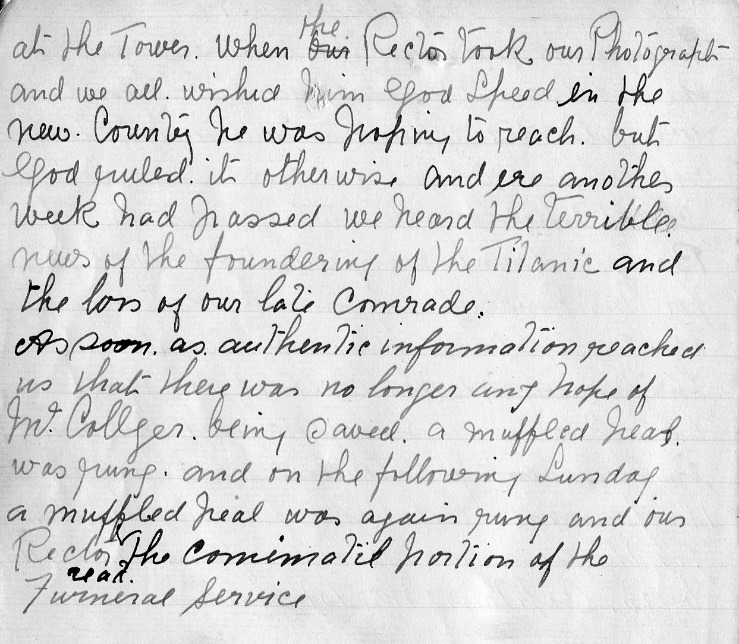 at the Tower. When the our Rector took our Photograph
and we all. wished him God Speed in the
new. Country he was hoping to reach. but
God ruled. it otherwise and ere another
week had passed we heard the terrible
news of the foundering of the Titanic and
the loss of our late Comrade.
As soon. as. authentic information reached
us that there was no longer any hope of
Mr. Collyer. being saved. a muffled peal.
was rung. and on the following Sunday
a muffled peal was again rung and our
Rector read. the portion of the
Furneral Service